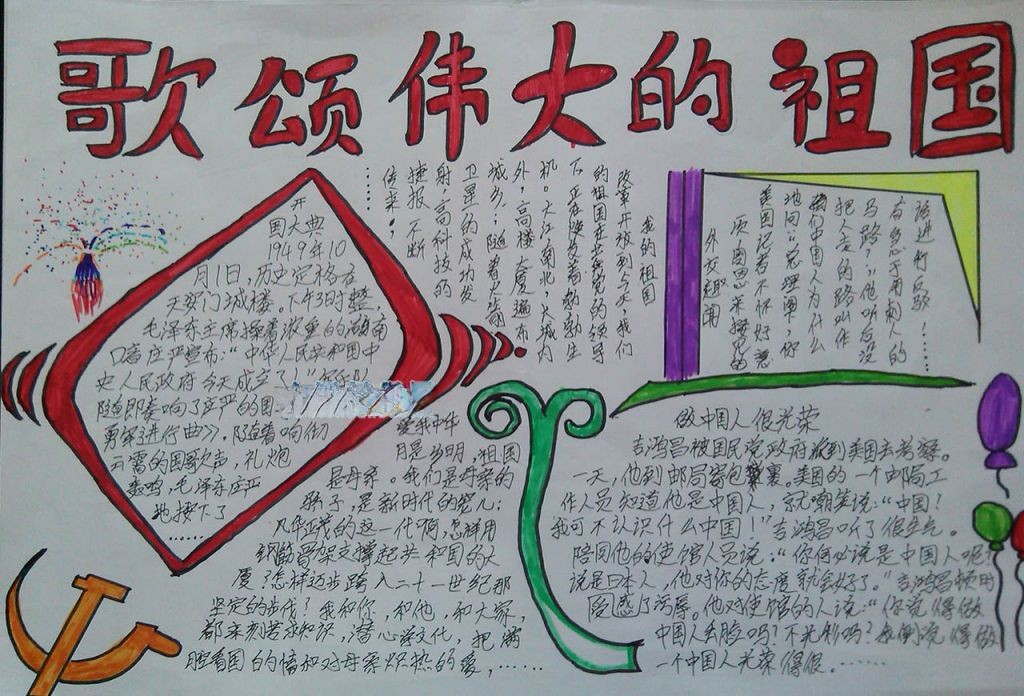 歌颂伟大的祖国
开
国大典
1949年10
月1日,历史定格在
天安门城楼。下午3时整,
毛泽东主席操着浓重的湖南
口音庄严宣布:“中华人民共和国中
央人民政府今天成立了!”
随即奏响了庄严的国
勇军进行曲》。随着响彻
云霄的国歌声,礼炮
轰鸣,毛泽东庄严
地按下了
......
我的祖国
改革开放到今天,我们
的祖国在党的领导
下,正在焕发着勃勃生
机。大江南北,长城内
外,高楼大厦遍布
城乡;随着火箭
卫星的成功发
射,高科技的
捷报不断
传来,
......
外交趣闻
一次周恩来接见的
美国记者不怀好意
地问:“总理阁下,你
们中国人为什么
把人走的路叫作
马路?”他听后没
有急于用刺人的
话进行反驳......
爱我中华
月是明,祖国
是母亲。我们是母亲的
骄子,是新时代的宠儿;
风华正茂的这一代啊,怎样用
钢筋骨架支撑起共和国的大
厦?怎样迈步踏入二十一世纪那
坚定的步伐?我和你,和他,和大家,
都来刻苦求知识,潜心读文化,把满
腔着国的情和对母亲炽热的爱,......
做中国人很光荣
吉鸿昌被国民党政府派到美国去考察。
一天,他到邮局寄包裹。美国的一个邮局工
作人员知道他是中国人,就嘲笑说:“中国?
我可不认识什么中国!”吉鸿昌听了很生气。
陪同他的使馆人员说:“你何必说是中国人呢?
说是日本人,他对你的态度就会好了。”吉鸿昌顿时
感到了污辱。他对使馆的人说:“你觉得做
中国人丢脸吗?不光彩吗?我倒觉得做
一个中国人光荣得很。......